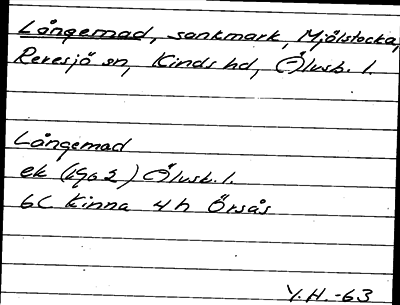 Långemad, sankmark, Mjålstocka,
Revesjö sn, Kinds hd, Älvsb. l.
Långemad
ek (1962) Älvsb. l.
6C Kinna 4h Örsås
Y.H.-63